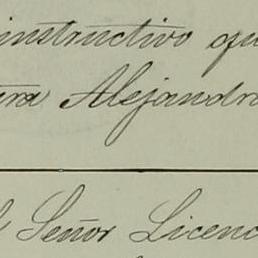 instructivo qu
ura Alejandro
l Señor Licenc